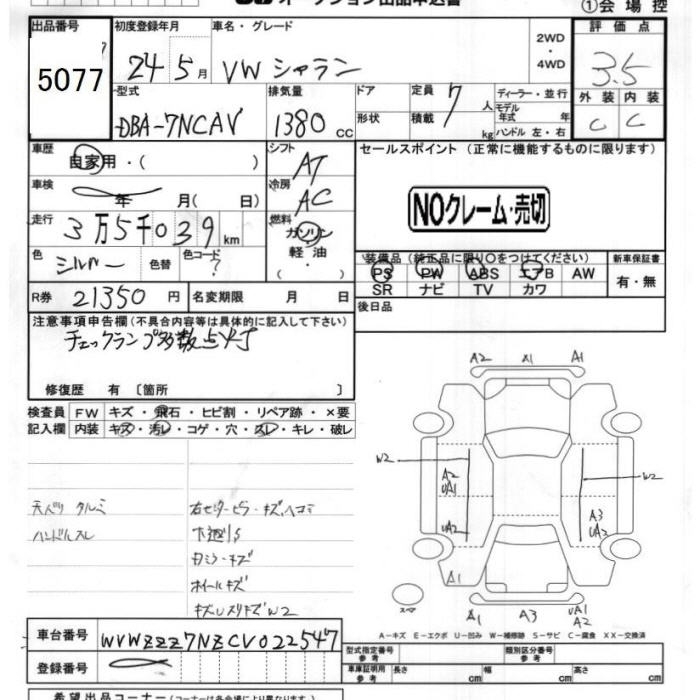 オークション出品申込書
①会場控
出品番号
初度登録年月 車名・グレード
評価点
5077
24 5月 VW シャラン
2WD
・
4WD
3.5
型式 排気量 ドア 定員 7 人 ディーラー・並行
外装 内装
DBA-7NCAV 1380 cc 形状 積載 kg モデル年式 年
C C
ハンドル 左・右
車歴 自家用・( )
シフト AT
セールスポイント (正常に機能するものに限ります)
車検 年 月( 日)
冷房 AC
NOクレーム・売切
走行 3万5千039km
燃料 ガソリン
軽油
・( )
色 シルバー 色替 色コード ?
装備品(純正品に限り○をつけてください) 新車保証書
PS PW ABS エアB AW
有・無
SR ナビ TV カワ
R券 21350円 名変期限 月 日
後日品
注意事項申告欄(不具合内容等は具体的に記入して下さい)
チェックランプ多数点灯
修復歴 有 〔箇所 〕
検査員 FW キズ・飛石・ヒビ割・リペア跡・×要
記入欄 内装 キズ・汚レ・コゲ・穴・スレ・キレ・破レ
A2 X1 A1
W2 W2
A2
UA1
UA2
A3
UA2
A1
天バリ タルミ 右センターピラー・キズ、ヘコミ
ハンドルスレ 下廻りS
ホイールキズ
A1 A3 UA1
A2
スペア
A-キズ E-エクボ U-凹み W-補修跡 S-サビ C-腐食 XX-交換済
車台番号 WVWZZZ7NZCV022547
型式指定番号 参考 類別区分番号 参考
登録番号
車庫証明用 参考 長さ cm 幅 cm 高さ cm
希望出品コーナー(コーナーは各会場により異なります。)